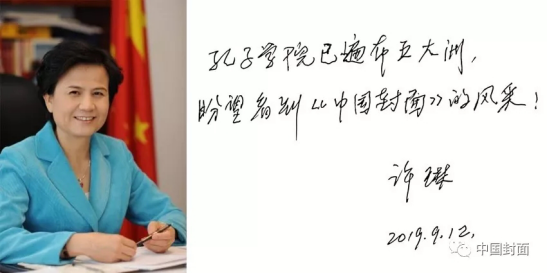 孔子学院已遍布五大洲,
盼望看到《中国封面》的风采!
许琳
2019.9.12.
中国封面